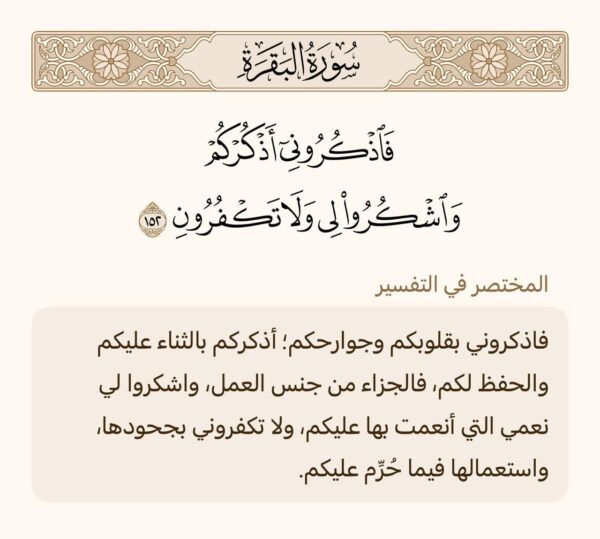 سُورَةُ البَقَرَةِ
فَٱذْكُرُونِىٓ أَذْكُرْكُمْ
وَٱشْكُرُوا۟ لِى وَلَا تَكْفُرُونِ ١٥٢
المختصر في التفسير
فاذكروني بقلوبكم وجوارحكم؛ أذكركم بالثناء عليكم
والحفظ لكم، فالجزاء من جنس العمل، واشكروا لي
نعمي التي أنعمت بها عليكم، ولا تكفروني بجحودها،
واستعمالها فيما حُرِّم عليكم.